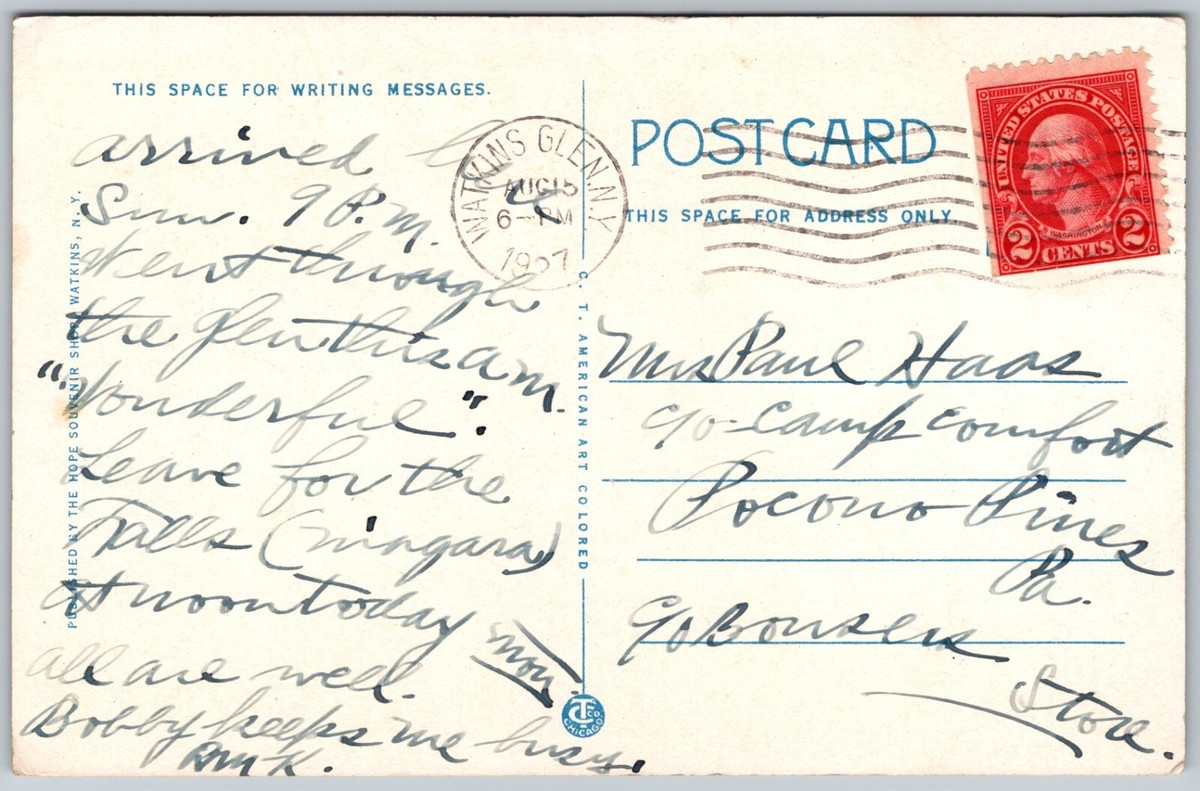 THIS SPACE FOR WRITING MESSAGES.
arrived here
Sun. 9 P.M.
Went through
the glen this a m.
"Wonderful".
Leave for the
Falls (niagara)
at noon today
mon.
all are well.
Bobby keeps me busy.
K.
PUBLISHED BY THE HOPE SOUVENIR SHOP, WATKINS, N. Y.
C. T. AMERICAN ART COLORED
CTCo CHICAGO
WATKINS GLEN, N.Y.
AUG 15
6 - PM
POST CARD
THIS SPACE FOR ADDRESS ONLY.
UNITED STATES POSTAGE
WASHINGTON
2 CENTS 2
Mrs Paul Haas
c/o - Camp Comfort
Pocono Pines
Pa.
c/o Bonsers
Store.